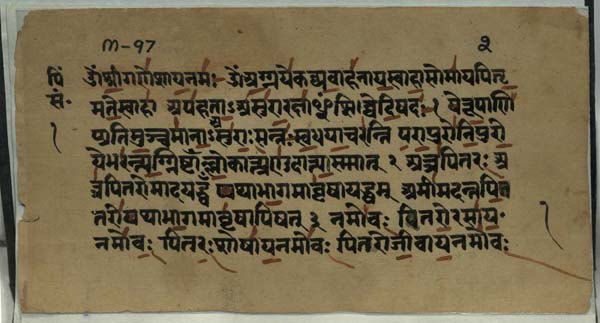 M-97 २
पिं ॐश्रीगणेशायनमः ॐअग्नयेकव्यवाहनायस्वाहासोमायपितृ
सं॰ मतेस्वाहा अपहताऽअसुरारक्षाᳪसिव्वेदिषदः १ येरूपाणि
१ प्रतिमुञ्चमानाऽअसुराःसन्तःस्वधयाचरन्ति परापुरोनिपुरो
येभरन्त्यग्निष्टाँल्लोकात्प्रणुदात्यस्मात् २ अत्रपितरः अ
त्रपितरोमादयद्ध्वं यथाभागमावृषायद्ध्वम् अमीमदन्तपित
तरोयथाभागमावृषायिषत ३ नमोवः पितरोरसाय १
नमोवः पितरःशोषायनमोवः पितरोजीवायनमोवः